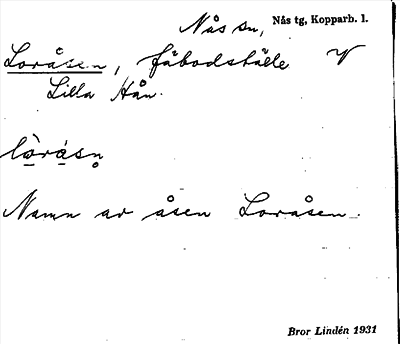 Nås sn, Nås tg, Kopparb. l.
Loråsen, fäbodställe V
Lilla Hån.
lòrásn̥
Namn av åsen Loråsen.
Bror Lindén 1931